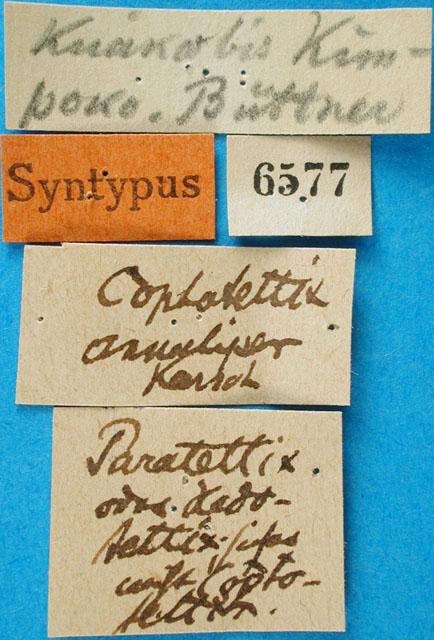 Kuako bis Kim-
poko. Büttner
Syntypus
6577
Coptotettix
annulipes
Karsch
Paratettix
oder Dado-
tettix
nicht Copto-
tettix.